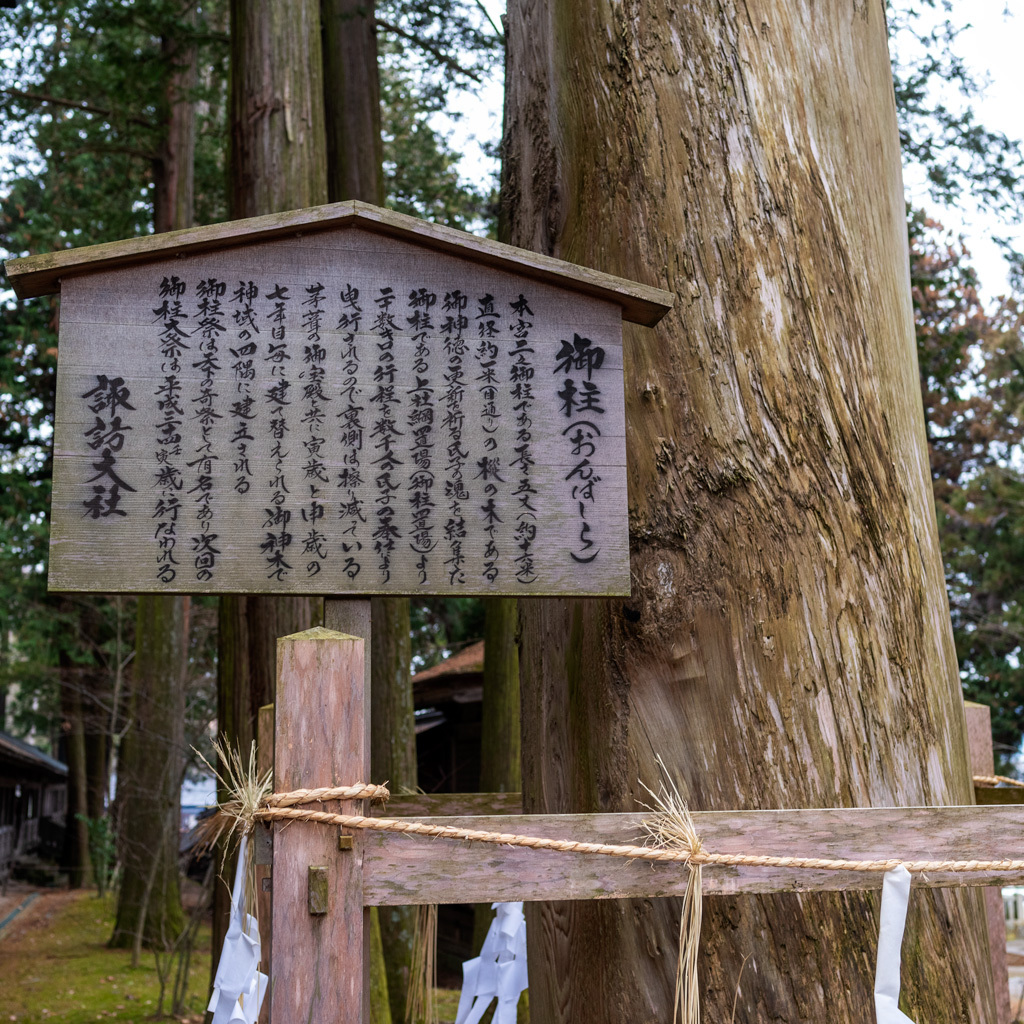 御柱(おんばしら)
本宮二之御柱である 長さ五丈(約十七米)
直径約一米(目通り)の樅の木である
御神徳の更新を祈る氏子の魂を結集した
御柱である 上社綱置場(御柱置場)より
二十数キロの行程を数千人の氏子の奉仕により
曳行されるので裏側は擦り減っている
茅葺の御宝殿と共に寅歳と申歳の
七年目毎に建て替えられる御神木で
神域の四隅に建立される
御柱祭は天下の奇祭として有名であり次回の
御柱大祭は平成三十四年壬寅歳に行なわれる
諏訪大社